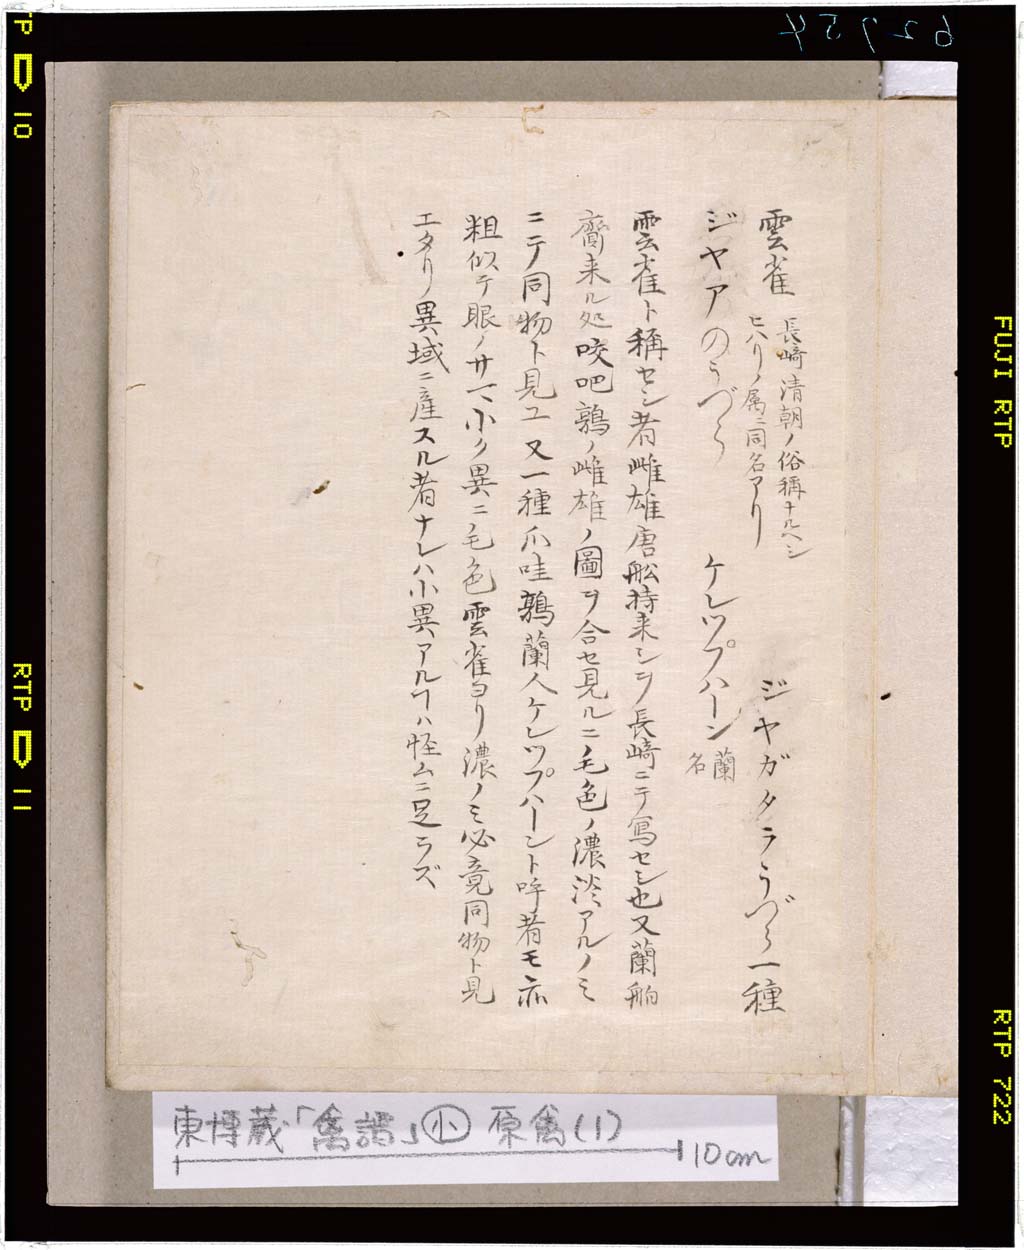 雲雀 長崎清朝ノ俗稱ナルヘシ
ヒバリノ属ニ同名アリ
ジヤガタラうづら一種
ジヤアのうづら
ケレツプハーン 蘭名
雲雀ト稱セシ者雌雄唐舩持来シヲ長崎ニテ寫セシ也又蘭舶
齎来ル処咬𠺕吧鶉ノ雌雄ノ圖ヲ合セ見ルニノ毛色ノ濃淡アルノミ
ニテ同物ト見ユ又一種爪哇鶉蘭人ケレツプハーント呼者モ亦
粗似テ眼ノサマ小ク異ニ毛色雲雀ヨリ濃ノミ必竟同物ト見
エタリ異域ニ産スル者ナレハ小異アルヿハ怪ムニ足ラズ
東博蔵「禽譜」小 原禽(1)
10cm
62954
RTP 10
RTP 11
FUJI RTP
RTP 722